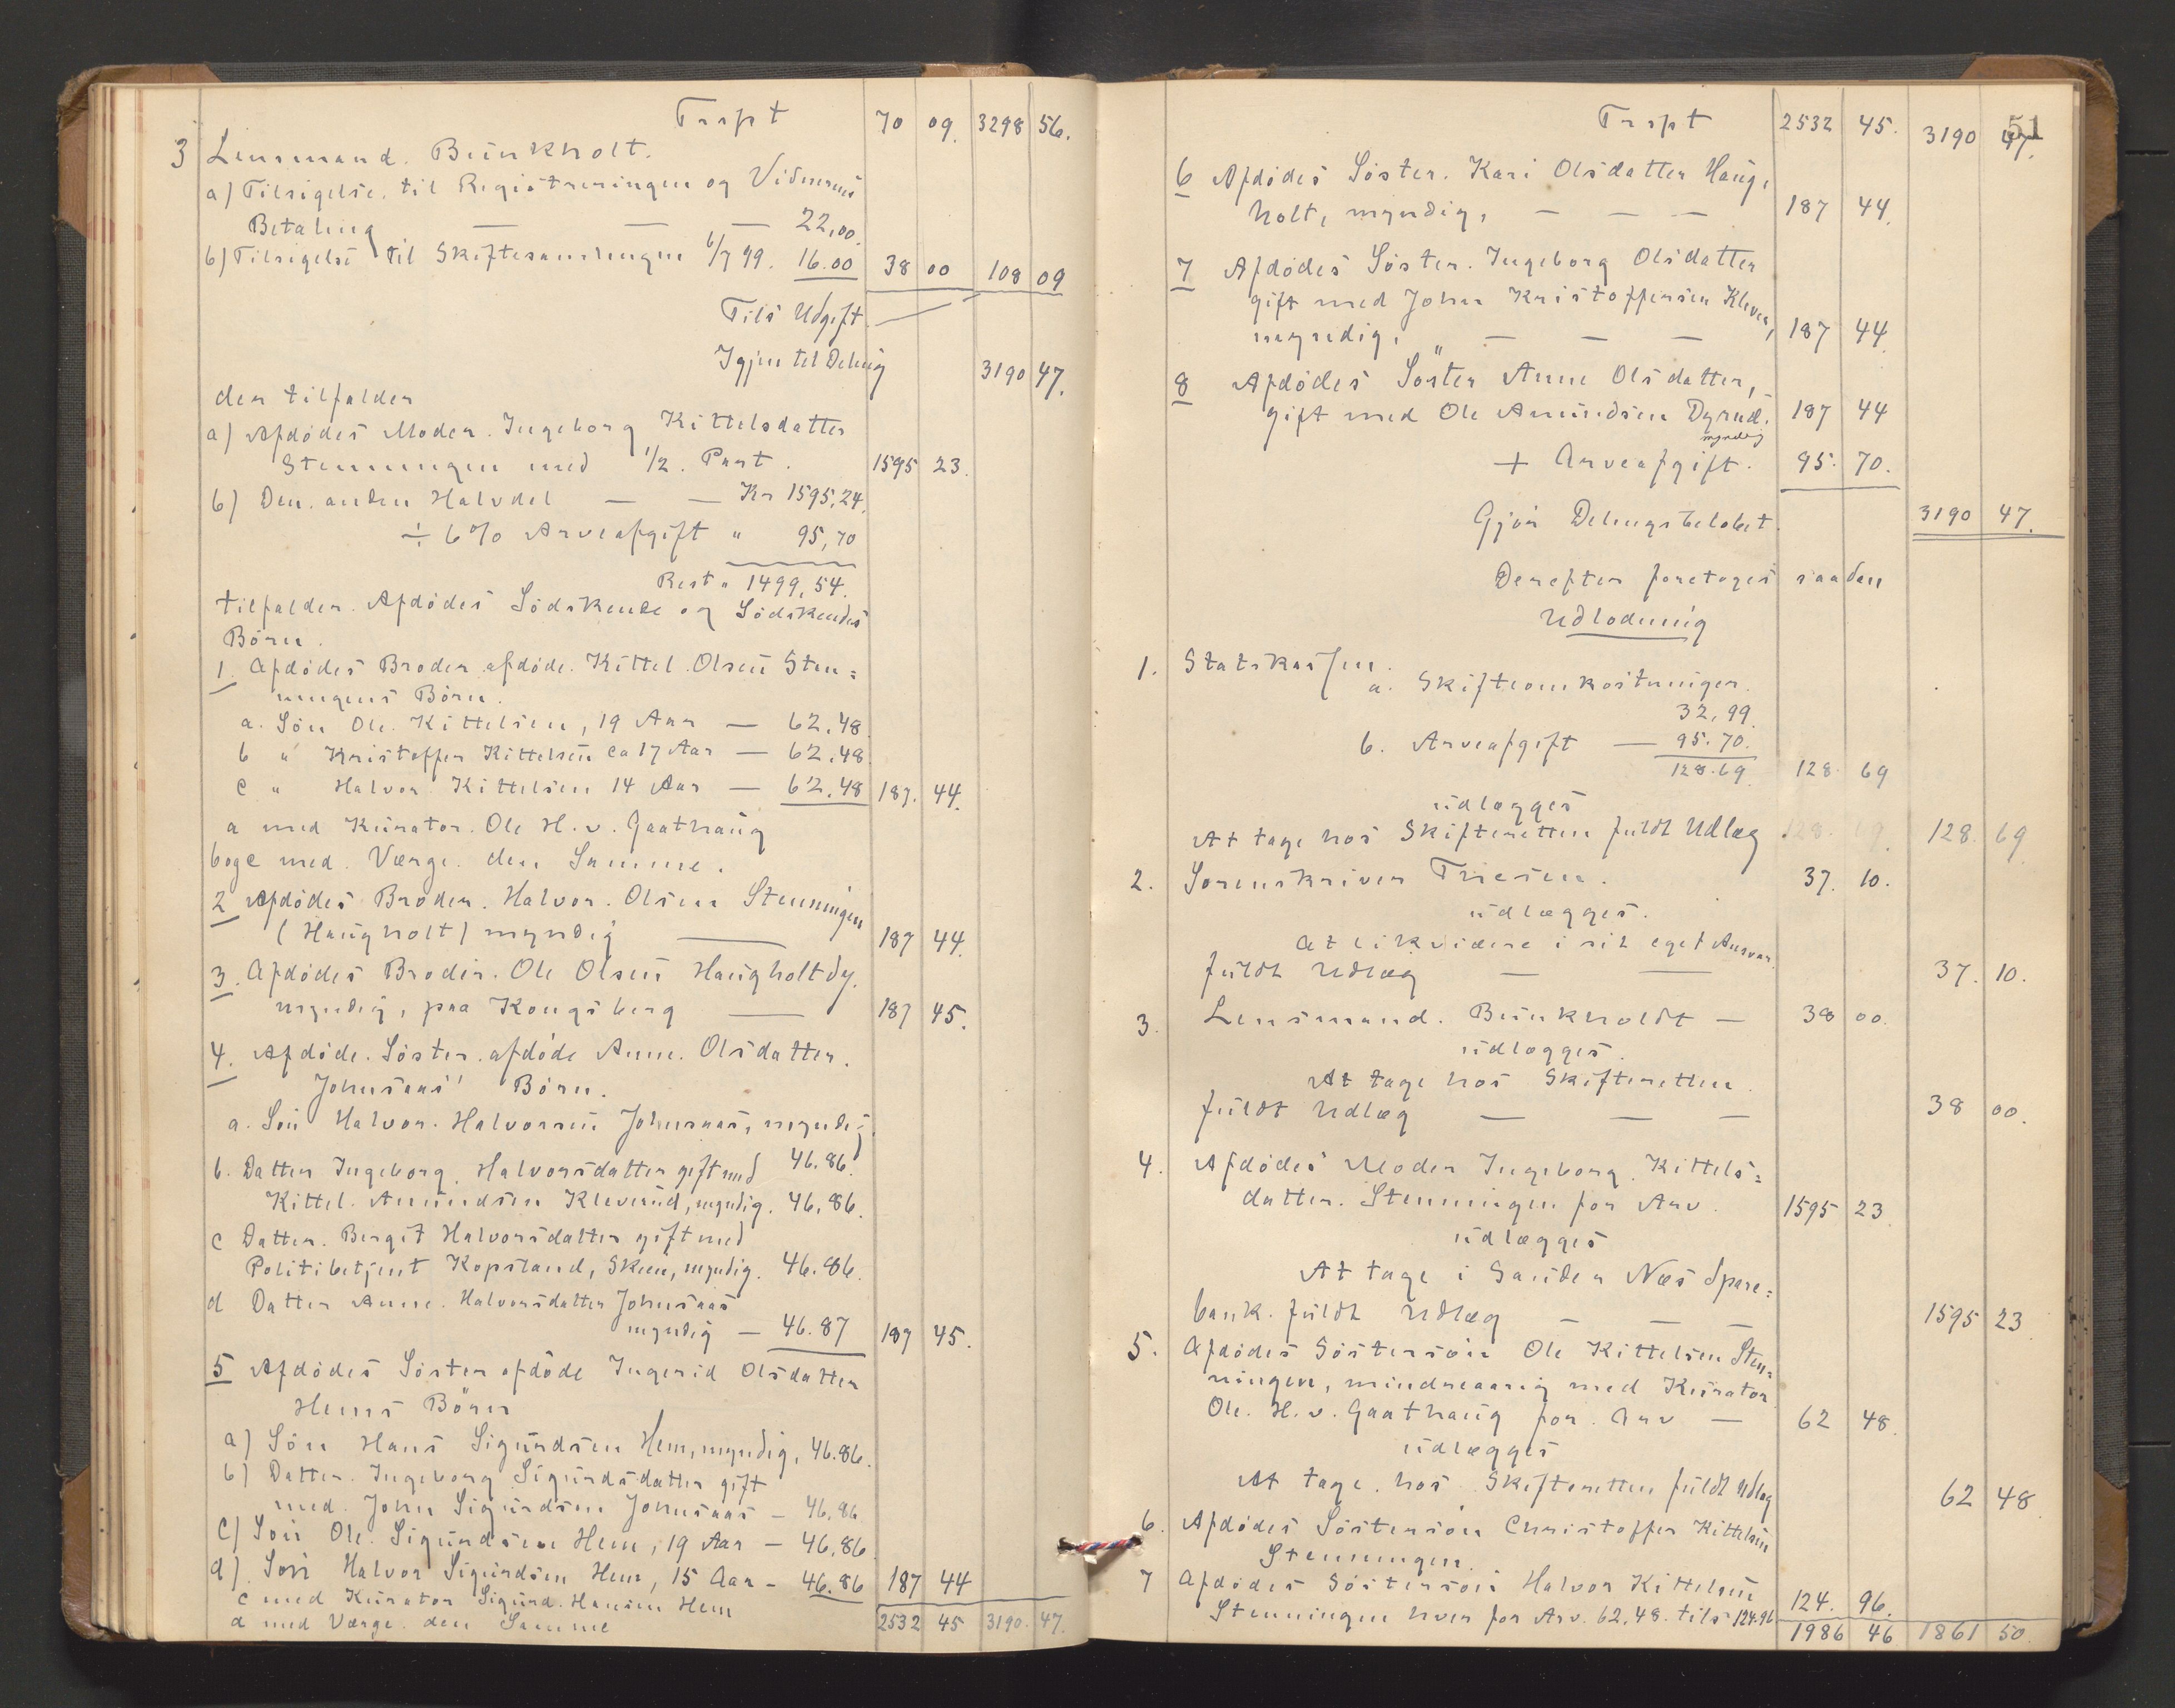 Trspt 70 09. 3298 56.
3 Lensmand. Bunkholt.
a) Tilsigelse til Registreringen og Vidnernes
Betaling — — — 22,00.
b) Tilsigelse til Skiftesamlingen 6/7 99. 16.00 38 00 108 09
Tils Udgift —
Igjen til Deling 3190 47.
der tilfalder
a) Afdødes Moder. Ingeborg Kittelsdatter
Stenningen med 1/2. Part. 1595 23.
b) Den anden Halvdel — — Kr 1595,24.
÷ 6% Arveafgift " 95,70
Rest " 1499,54.
tilfalder. Afdødes Sødskende og Sødskendes
Børn.
1. Afdødes Broder afdøde Kittel Olsen Sten=
ningens Børn.
a. Søn Ole. Kittelsen, 19 Aar — 62.48
b " Kristoffer Kittelsen ca 17 Aar — 62.48
c " Halvor Kittelsen 14 Aar — 62.48 187. 44.
a med Kurator. Ole H. v. Gaathaug
b og c med. Værge. den Samme.
2 Afdødes Broder. Halvor. Olsen Stenningen
(Haugholt) myndig — 187 44.
3. Afdødes Broder. Ole Olsen Haugholt dy.
myndig, paa Kongsberg — 187 45.
4. Afdøde. Søster. afdøde Anne. Olsdatter.
Johnsaas' Børn.
a. Søn Halvor. Halvorsen Johnsaas, myndig.
46.86.
b. Datter Ingeborg. Halvorsdatter gift med
Kittel. Amundsen Kleverud, myndig. 46.86.
c Datter. Bergit Halvorsdatter gift med
Politibetjent Kopsland, Skien, myndig. 46.86.
d Datter Anne. Halvorsdatter Johnsaas
myndig — 46.87 187 45.
5 Afdødes Søster afdøde Ingerid Olsdatter
Hems Børn
a) Søn Hans Sigurdsen Hem, myndig, 46.86.
b) Datter. Ingeborg Sigurdsdatter gift
med. John Sigurdsen Johnsaas — 46.86
c) Søn Ole. Sigurdsen Hem, 19 Aar — 46,86
d) Søn Halvor Sigurdsen Hem, 15 Aar — 46.86 187 44
c med Kurator Sigurd. Hansen Hem
d med Værge. den Samme 2532 45 3190. 47.
51
Trspt 2532 45. 3190 47.
6 Afdødes Søster. Kari Olsdatter Haug,
holt, myndig, — — — 187 44.
7 Afdødes Søster. Ingeborg Olsdatter
gift med John Kristoffersen Kleven,
myndig, — — — 187 44.
8 Afdødes Søster Anne Olsdatter,
gift med Ole Amundsen Dyrud. 187 44
myndig
+ Arveafgift. 95. 70.
Gjør Delingsbeløbet. 3190 47.
Derefter foretoges saadan
Udlodning
1. Statskassen.
a. Skifteomkostninger.
32,99.
b. Arveafgift — 95.70.
128.69 128 69
udlægges
At tage hos Skifteretten fuldt Udlæg 128. 69. 128. 69
2. Sorenskriver Thesen. 37. 10.
udlægges.
at likvidere i sit eget Ansvar.
fuldt Udlæg — — 37. 10.
3. Lensmand. Bunkholdt — 38 00.
udlægges.
At tage hos Skifteretten.
fuldt Udlæg — — — 38 00.
4. Afdødes Moder Ingeborg. Kittels=
datter. Stenningen for Arv. 1595 23
udlægges
At tage i Sauider Næs Spare=
bank. fuldt Udlæg — — — 1595 23.
5. Afdødes Søstersøn Ole Kittelsen Sten,
ningen, mindreaarig med Kurator
Ole. H. v. Gaathaug for. Arv — 62 48.
udlægges
At tage hos Skifteretten fuldt Udlæg 62 48
6. Afdødes Søstersøn Christoffer Kittelsen
Stenningen.
7 Afdødes Søstersøn Halvor Kittelsen
Stenningen hver for Arv. 62,48. tils 124.96 124. 96.
1986 46 1861 50.